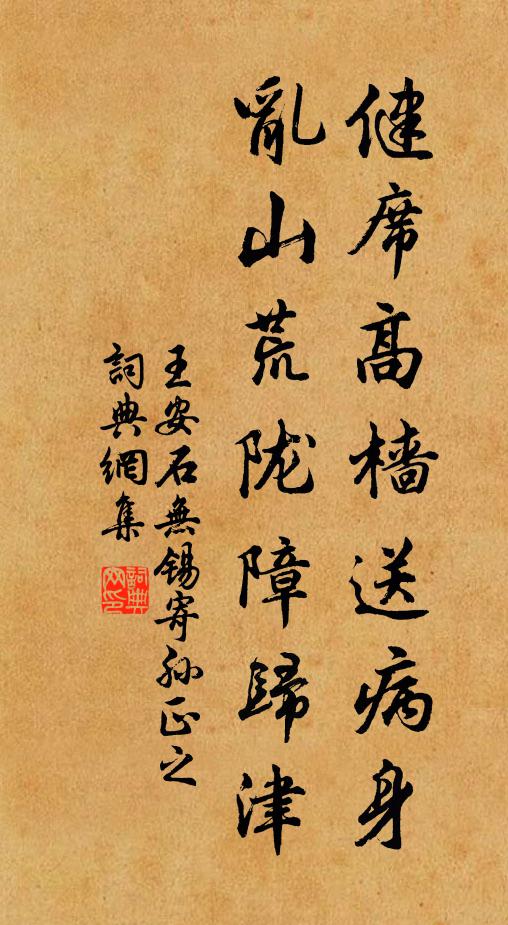 健席高檣送病身
亂山荒陇障歸津
王安石無锡寄孙正之
詞典網集
詞典網印